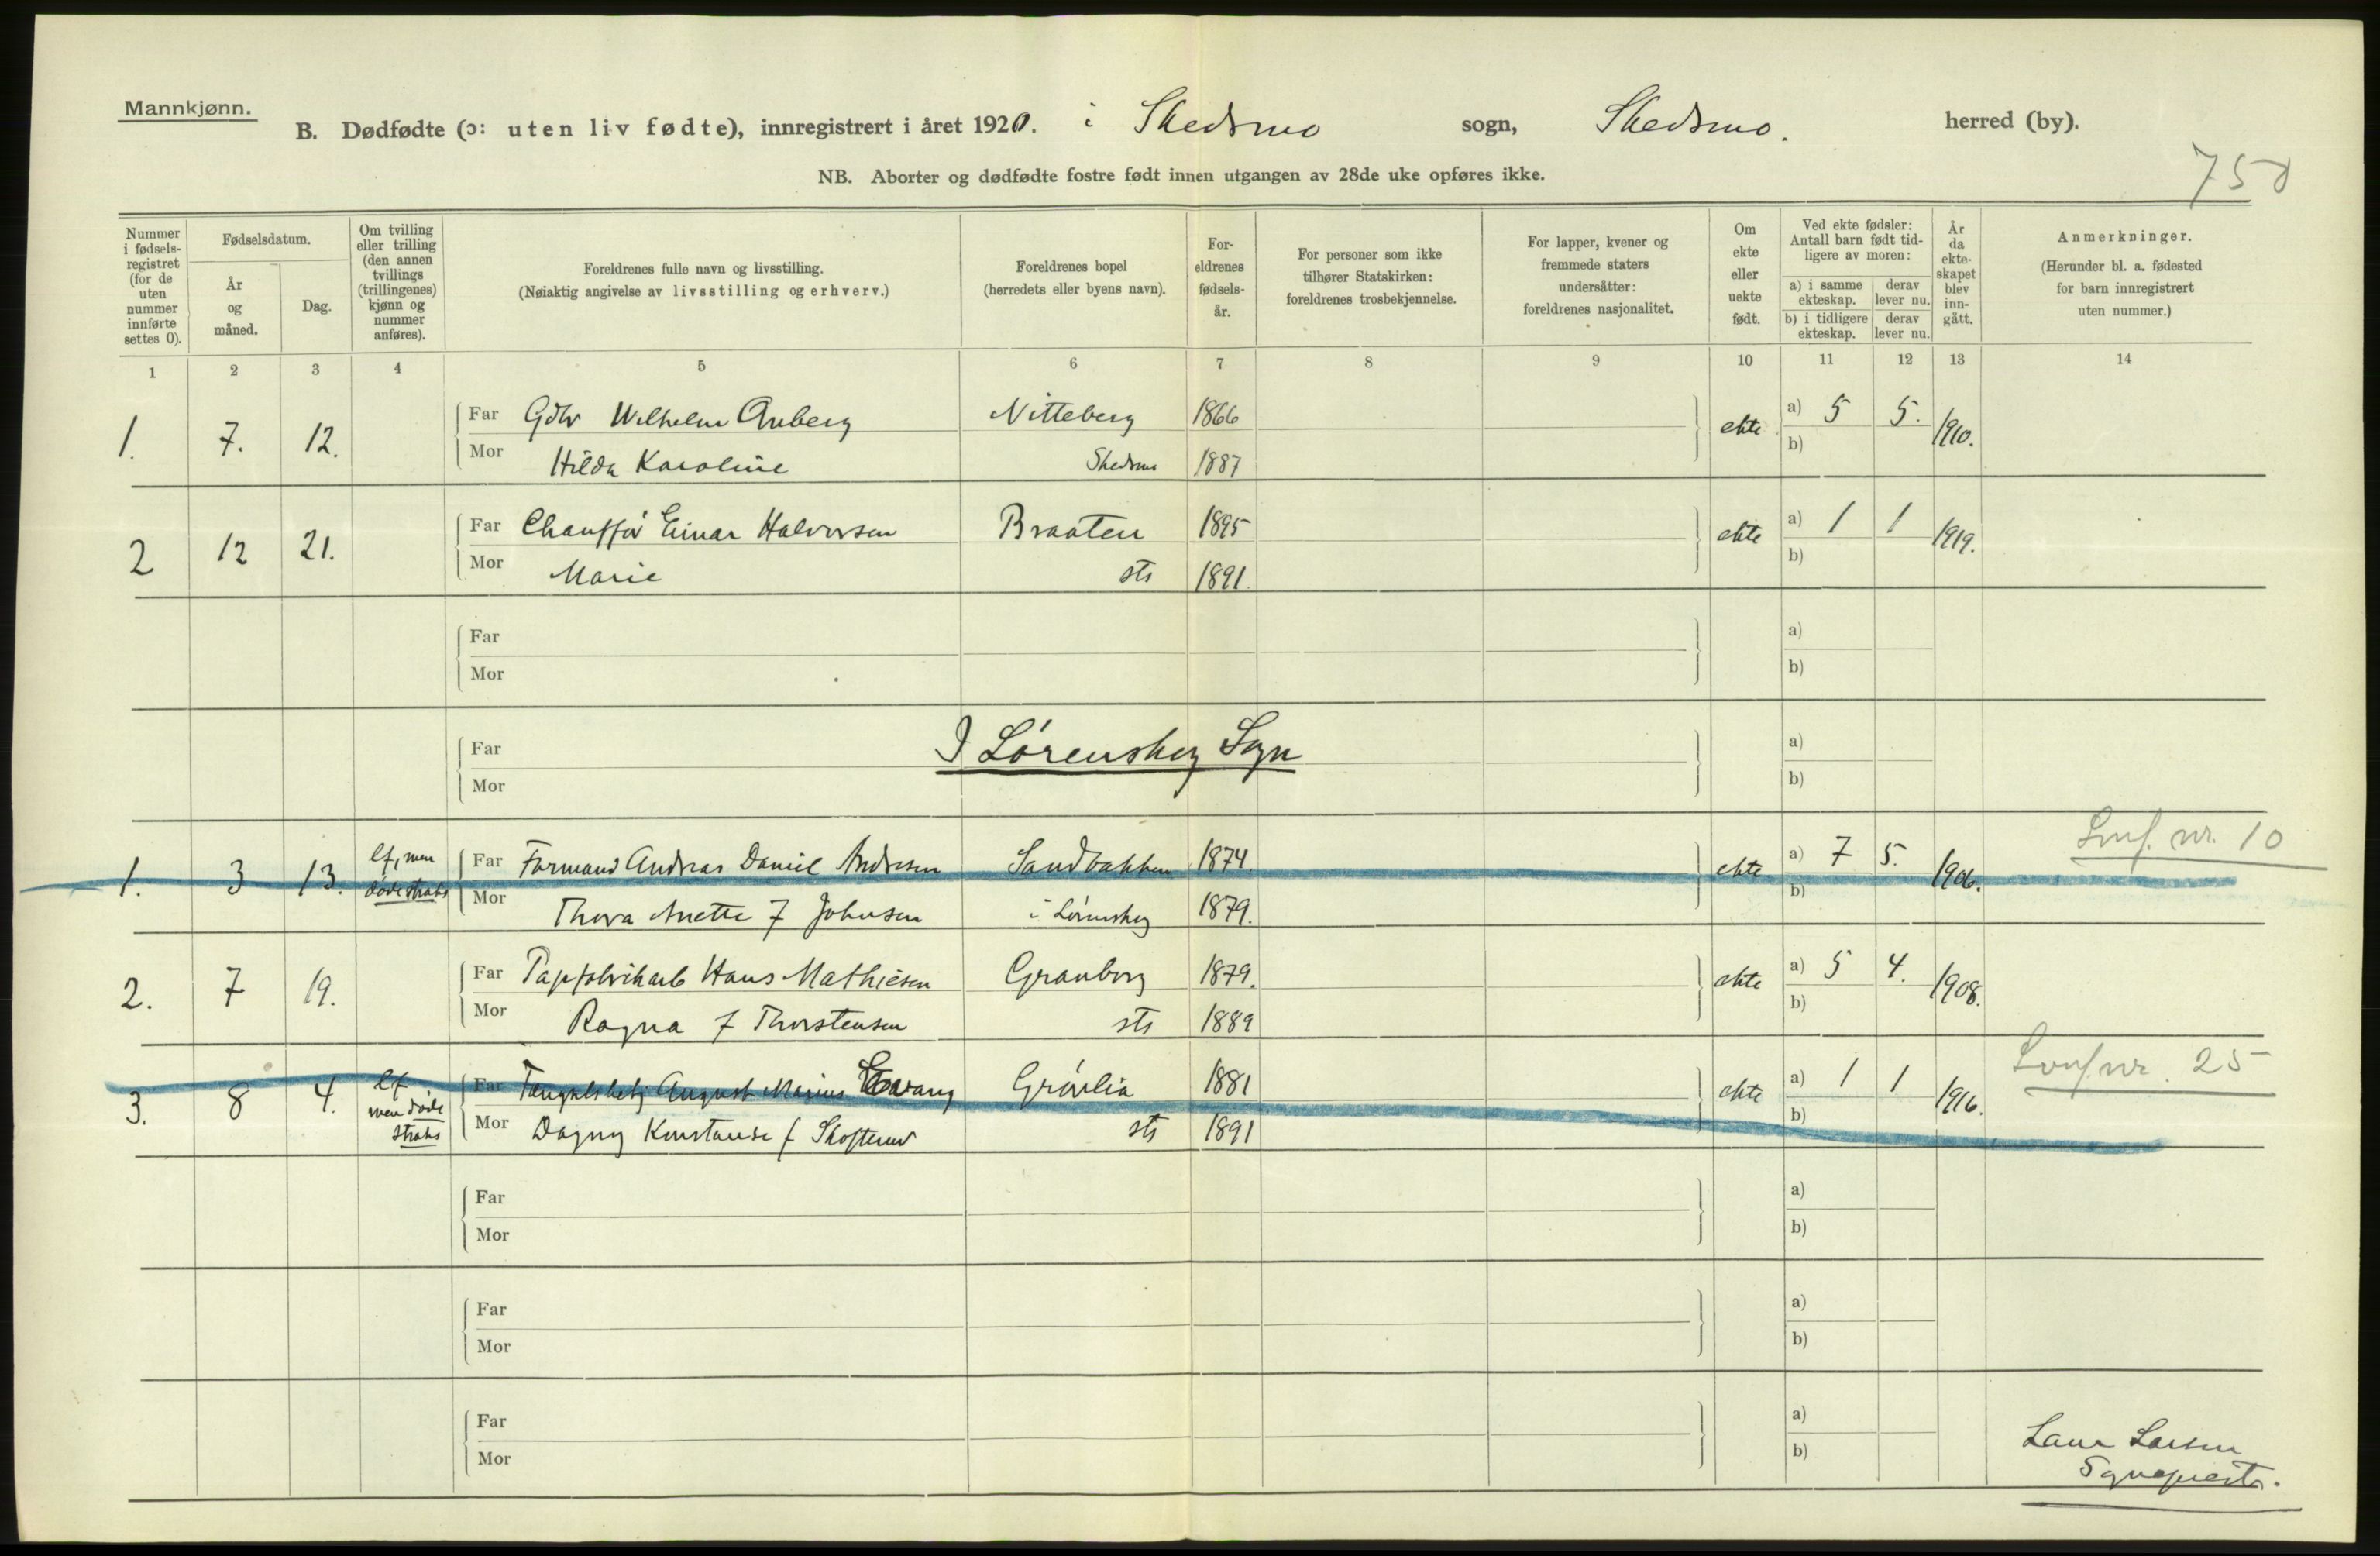 Mannkjønn.
B. Dødfødte (ɔ: uten liv fødte), innregistrert i året 1920. i Skedsmo sogn, Skedsmo. herred (by).
NB. Aborter og dødfødte fostre født innen utgangen av 28de uke opføres ikke.
758
Nummer i fødsels-registret (for de uten nummer innførte settes 0).
Fødselsdatum.
År og måned.
Dag.
Om tvilling eller trilling (den annen tvillings (trillingenes) kjønn og nummer anføres).
Foreldrenes fulle navn og livsstilling.
(Nøiaktig angivelse av livsstilling og erhverv.)
Foreldrenes bopel
(herredets eller byens navn).
For-eldrenes fødsels-år.
For personer som ikke tilhører Statskirken: foreldrenes trosbekjennelse.
For lapper, kvener og fremmede staters undersåtter: foreldrenes nasjonalitet.
Om ekte eller uekte født.
Ved ekte fødsler: Antall barn født tid-ligere av moren:
a) i samme ekteskap. derav lever nu.
b) i tidligere ekteskap. derav lever nu.
År da ekte-skapet blev inn-gått.
Anmerkninger.
(Herunder bl. a. fødested for barn innregistrert uten nummer.)
1 2 3 4 5 6 7 8 9 10 11 12 13 14
1. 7. 12. Far Gdbr Wilhelm Auberg Nitteberg 1866 ekte a) 5 5. 1910.
Mor Hilda Karoline Skedsmo 1887 b)
2 12 21. Far Chauffør Einar Halvorsen Braaten 1895 ekte a) 1 1 1919.
Mor Marie sts 1891. b)
Far a)
Mor b)
Far I Lørenskog Sogn a)
Mor b)
1. 3 13. lf, men døde straks Far Formand Andreas Daniel Andresen Sandbakken 1874. ekte a) 7 5. 1906. Levf. nr. 10
Mor Thora Anette f Johnsen i Lørenskog 1879. b)
2. 7 19. Far Papfabrikarb Hans Mathiesen Granborg 1879. ekte a) 5 4. 1908.
Mor Ragna f Thorstensen sts 1889 b)
3. 8 4. lf men døde straks Far August Marius Evang Grønlia 1881 ekte a) 1 1 1916. Levf. nr. 25
Mor Dagny Konstanse f sts 1891 b)
Far a)
Mor b)
Far a)
Mor b)
Far a)
Mor b)
Laur Larsen
Sogneprest.